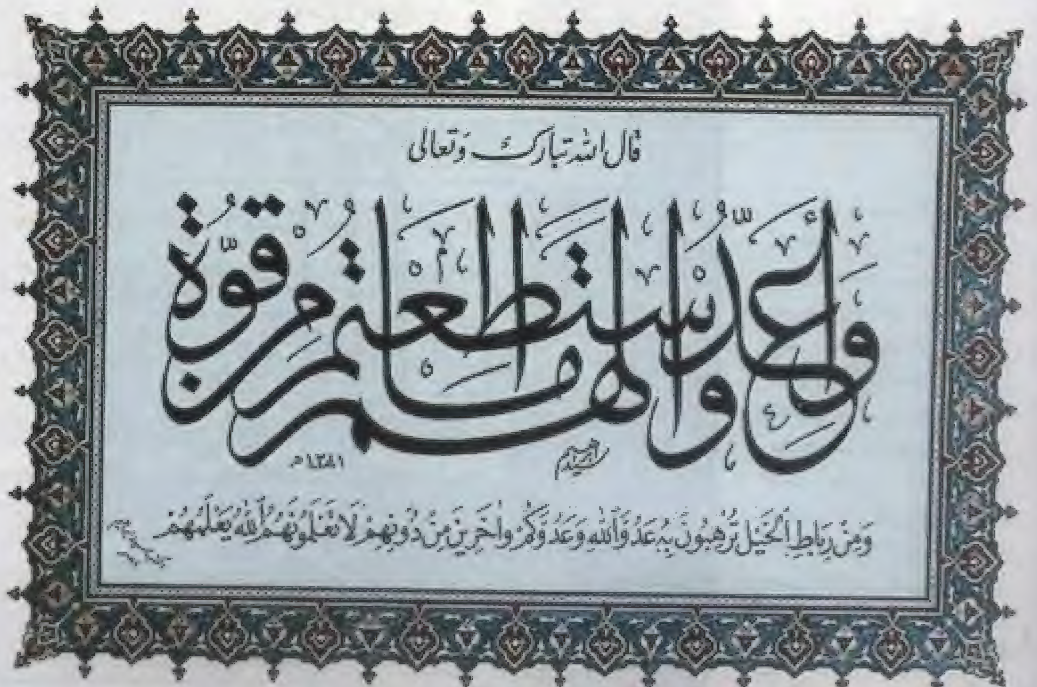 قال الله تبارك وتعالى
وأعدّوا لهم ما استطعتم من قوّة
سيد إبراهيم
١٣٨١هـ
وَمِنْ رِبَاطِ ٱلْخَيْلِ تُرْهِبُونَ بِهِ عَدُوَّ ٱللهِ وَعَدُوَّكُمْ وَآخَرِينَ مِنْ دُونِهِمْ لَا تَعْلَمُونَهُمُ ٱللهُ يَعْلَمُهُمْ